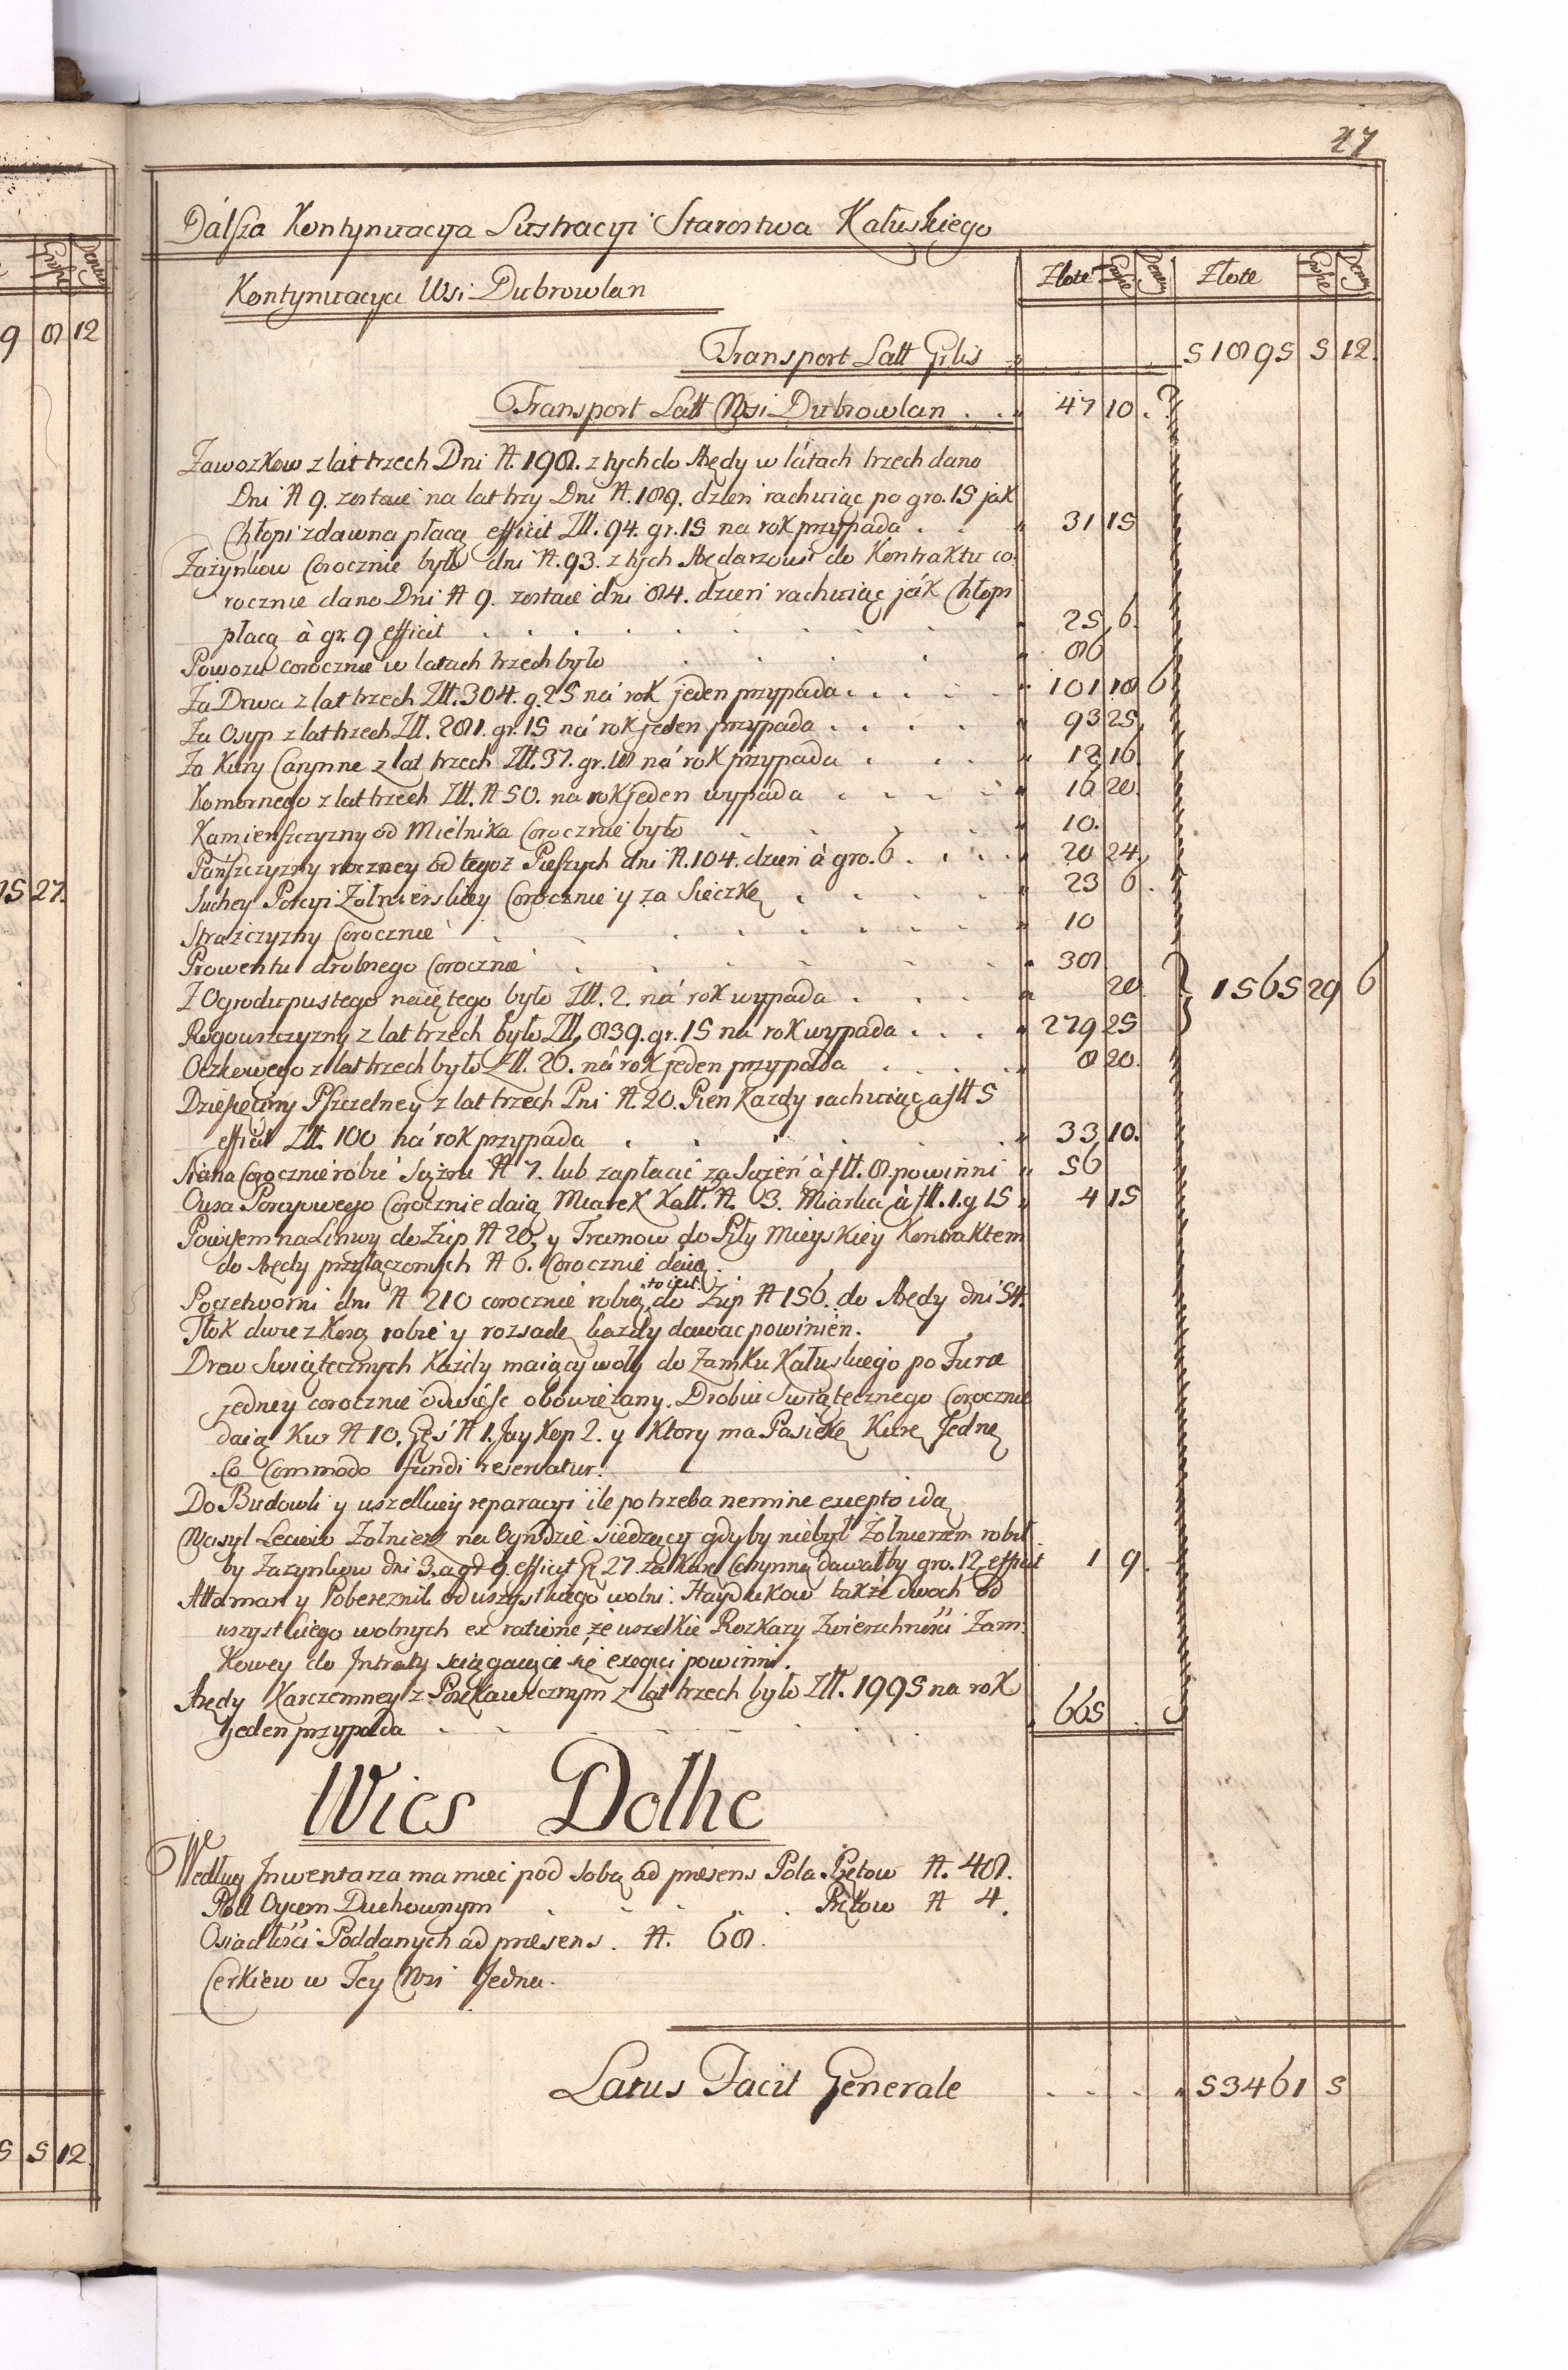 47
Dálsza Kontynuacya Lustracyi Starostwa Kałuskiego
Kontynuacya Wsi Dubrowlan
Złote Grosze Denary Złote Grosze Denary
Transport Latt Grlis 51895 5 12.
Transport Latt Wsi Dubrowlan 47 10.
Zawozkow z lat trzech Dni N. 198. z tych do Arędy w látach trzech dano
Dni N 9. zostaie na lat trzy Dni N. 189. dzień rachuiąc po gro. 15 jak
Chłopi zdawna płacą efficit Złł. 94. gr. 15 na rok przypada 31 15
Zażynkow Corocznie było dni N. 93. z tych Arędarzowi do Kontraktu co-
rocznie dano Dni N 9. zostaie dni 84. dzień rachuiąc ják Chłopi
płacą à gr. 9 efficit 25 6.
Powozu corocznie w latach trzech było 86
Za Drwa z lat trzech Złł. 304. g. 25 ná rok jeden przypada 101 18 6
Za Osyp z lat trzech Złł. 281. gr. 15 ná rok jeden przypada 93 25
Za Kury Czynne z lat trzech Złł. 37. gr. 18 ná rok przypada 12 16
Komornego z lat trzech Złł. N 50. na rok jeden wypada 16 20.
Kamienszczyzny od Mielnika Corocznie było 10.
Pańszczyzny roczney od tegoż Pieszych dni N. 104. dzień à gro. 6 20 24
Suchey Porcyi Żołnierskiey Corocznie y za Sieczkę 23 6.
Strażczyzny Corocznie 10
Prowentu drobnego Corocznie 38
Z Ogrodu pustego naiętego było Złł. 2. ná rok wypada 20 1565 29 6
Rogowszczyzny z lat trzech było Złł. 839. gr. 15 na rok wypada 279 25
Oczkowego z lat trzech było Złł. 26. ná rok jeden przypada 8 20.
Dziesięciny Pszczelney z lat trzech Pni N. 20. Pień Kazdy rachuiąc a fłł 5
efficit Złł. 100 ná rok przypada 33 10.
Siana Corocznie robić Sążni N 7. lub zapłacić za Sążeń à fłł. 8. powinni 56
Owsa Porcyowego Corocznie daią Miarek Kałł. N. 3. Miarka à fłł. 1. g 15 4 15
Powisem na Linwy do Żup N 20, y Tramow do Piły Mieyskiey Kontraktem
do Arędy przyłączonych N 6. Corocznie daią.
Poczetworni dni N 210 corocznie robią, to iest: do Żup N 156. do Arędy dni 54.
Tłok dwie z Kosą robić y rozsadę każdy dawac powinien.
Drew Swiątecznych Każdy maiący woły do Zamku Kałuskiego po Furze
jedney corocznie odwieść obowiężany. Drobiu Swiątecznego Corocznie
daią Kur N 10. Gęś N 1. Jay Kop 2. y Ktory ma Pasiekę Kurę Jednę
Co Commodo fundi reservatur.
Do Budowli y wszelkiey reparacyi ile potrzeba nemine excepto idą
Wasyl Leciów Żołnierz na Ogrodzie siedzący gdyby niebył Żołnierzem robił
by Zazynkow dni 3. a gr 9. efficit Gr 27. za Kurę Czynną dawałby gro. 12. efficit 1 9.
Attaman y Pobereznik od wszystkiego wolni. Haydukow także dwoch od
wszystkiego wolnych ex ratione że wszelkie Rozkazy Zwierzchności Zam-
kowey do Intraty sciągaiące się exequi powinni.
Arędy Karczemney z Porękawicznym z lat trzech było Złł. 1995 na rok
jeden przypada 665
Wies Dolhe
Według Inwentarza ma mieć pod sobą ad præsens Pola Prętow N. 48.
Pod Oycem Duchownym Prętow N 4.
Osiadłości Poddanych ad præsens. N. 68.
Cerkiew w Tey Wsi Jedna.
Latus Facit Generale 53461 5
9 8 12
15 27.
5 5 12